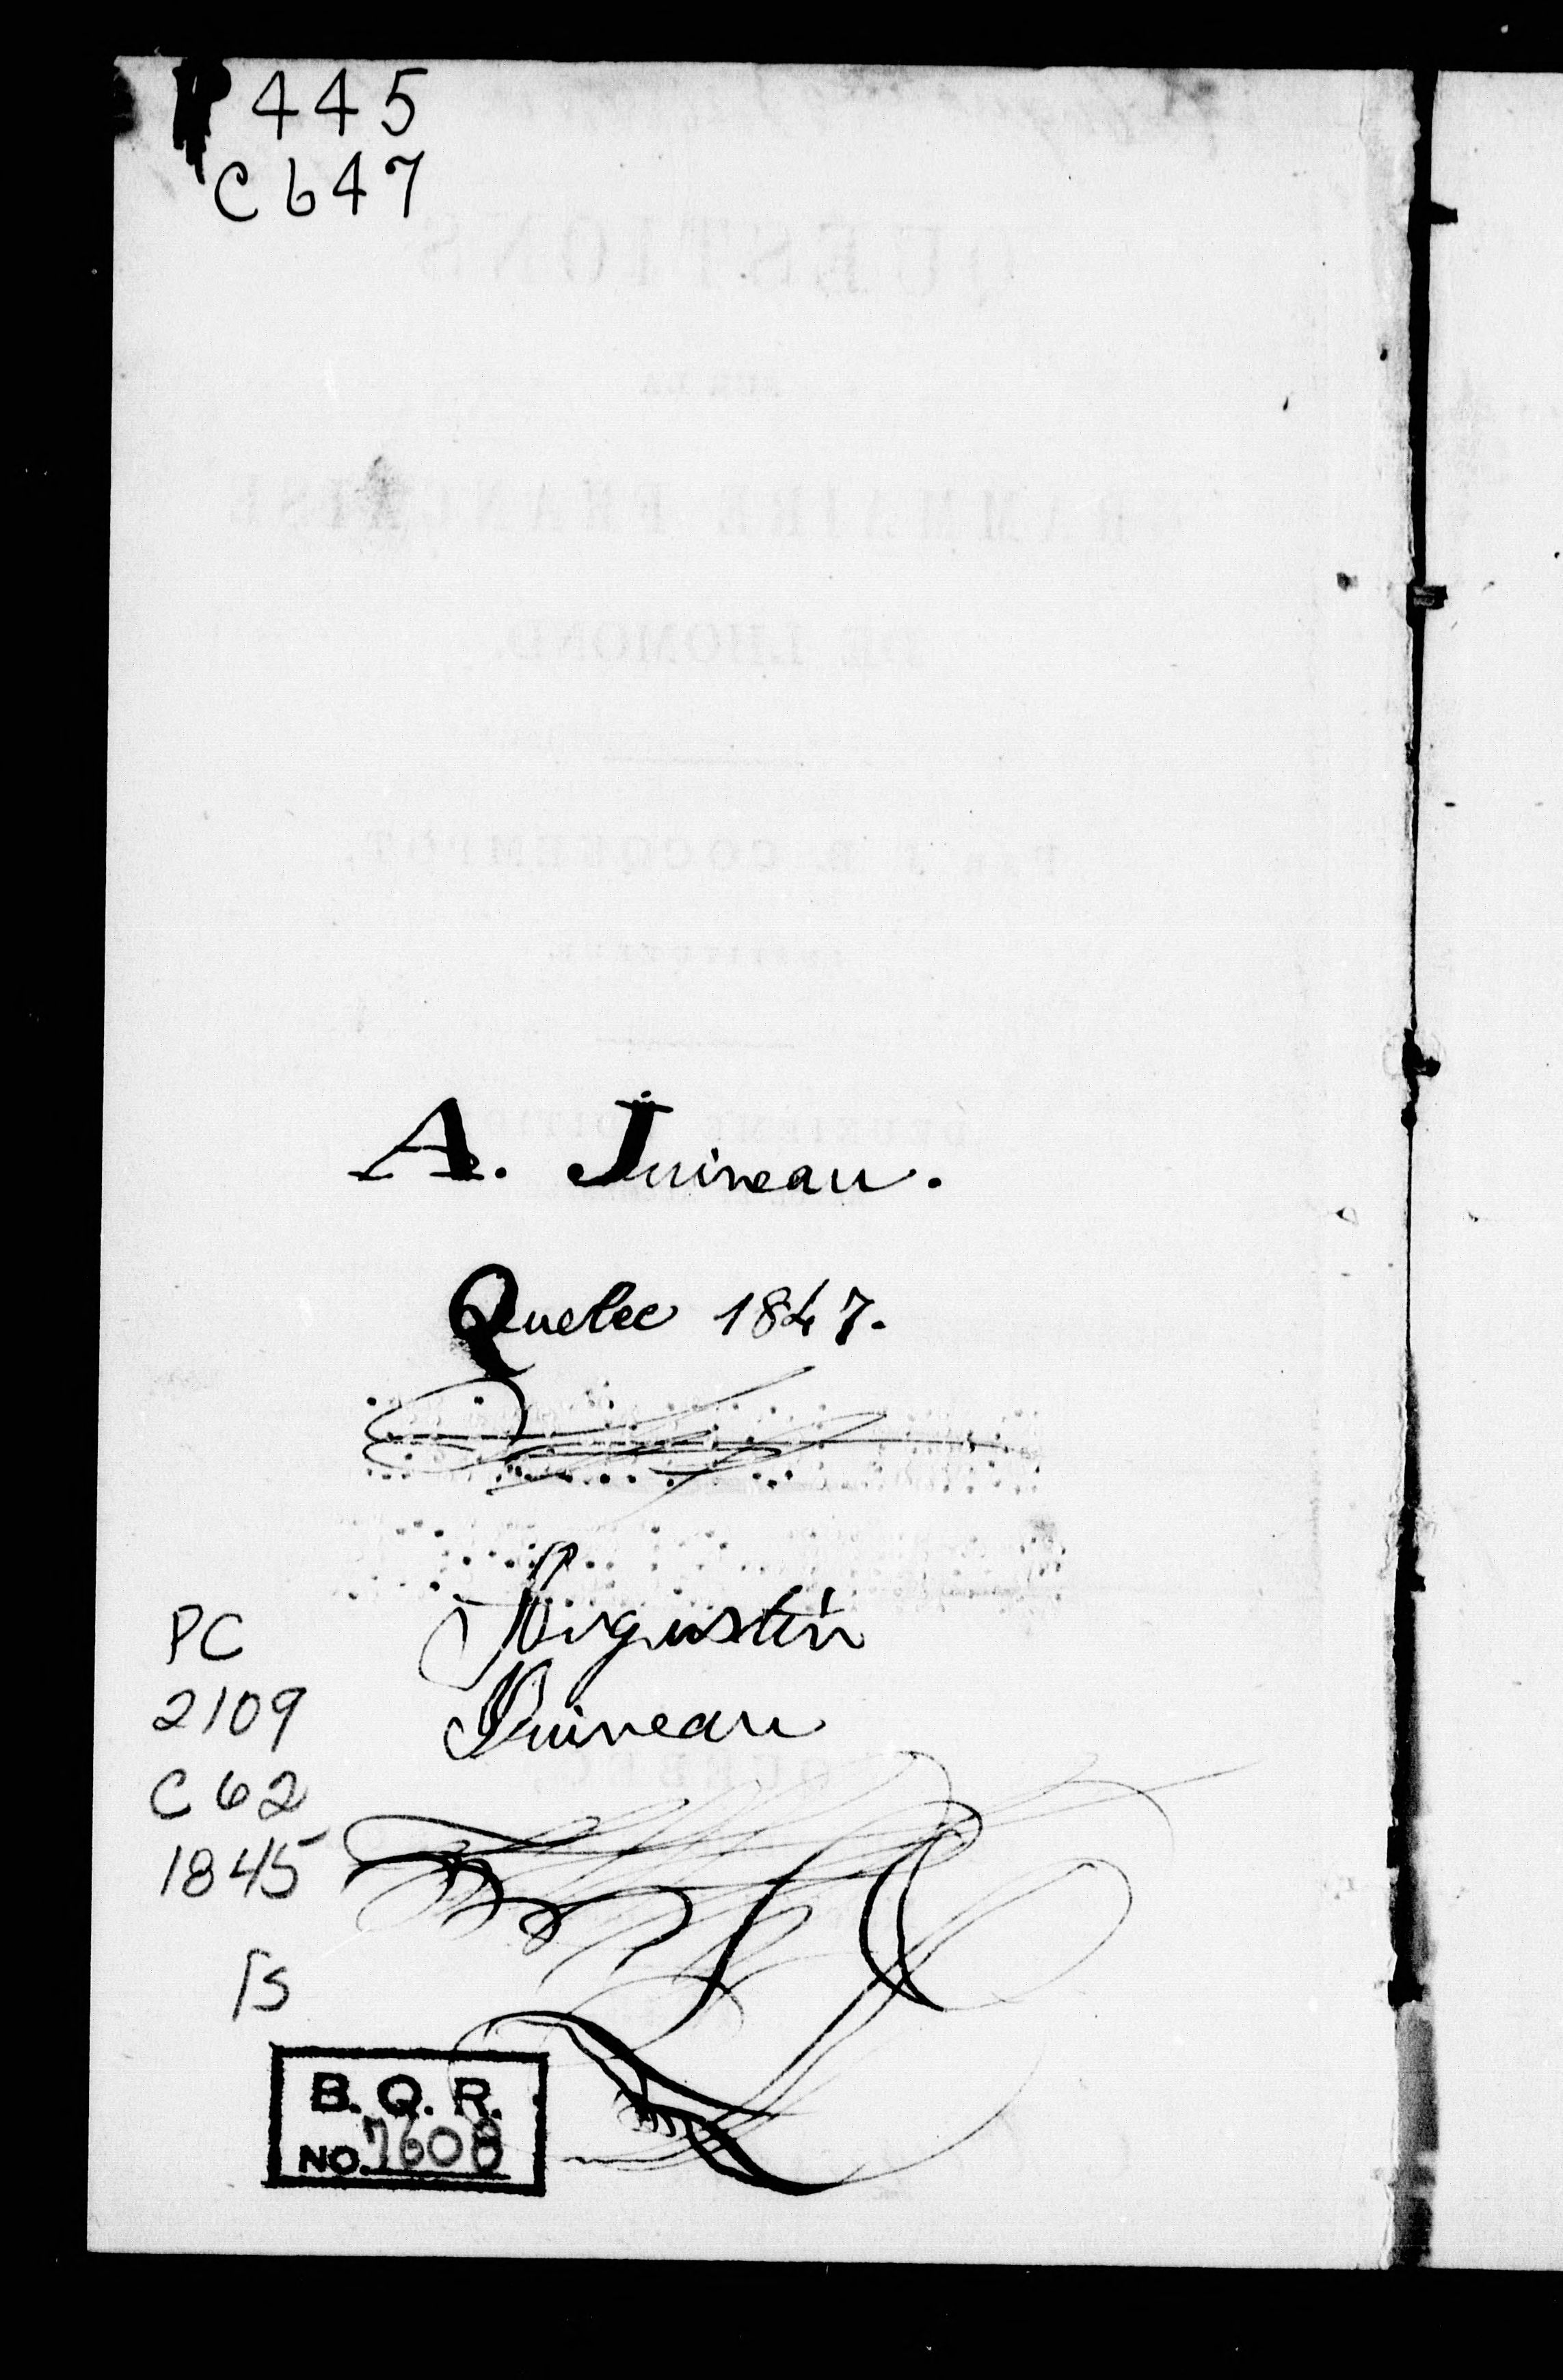 P 445
C 647
A. Juineau.
Quebec 1847.
Augustin
Juineau
PC
2109
C 62
1845
B. Q. R.
NO. 7608